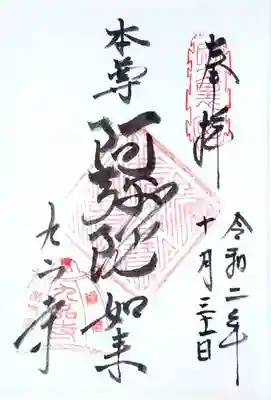 奉拝
令和二年
十月三十一日
本尊
阿弥陀如来
九品寺